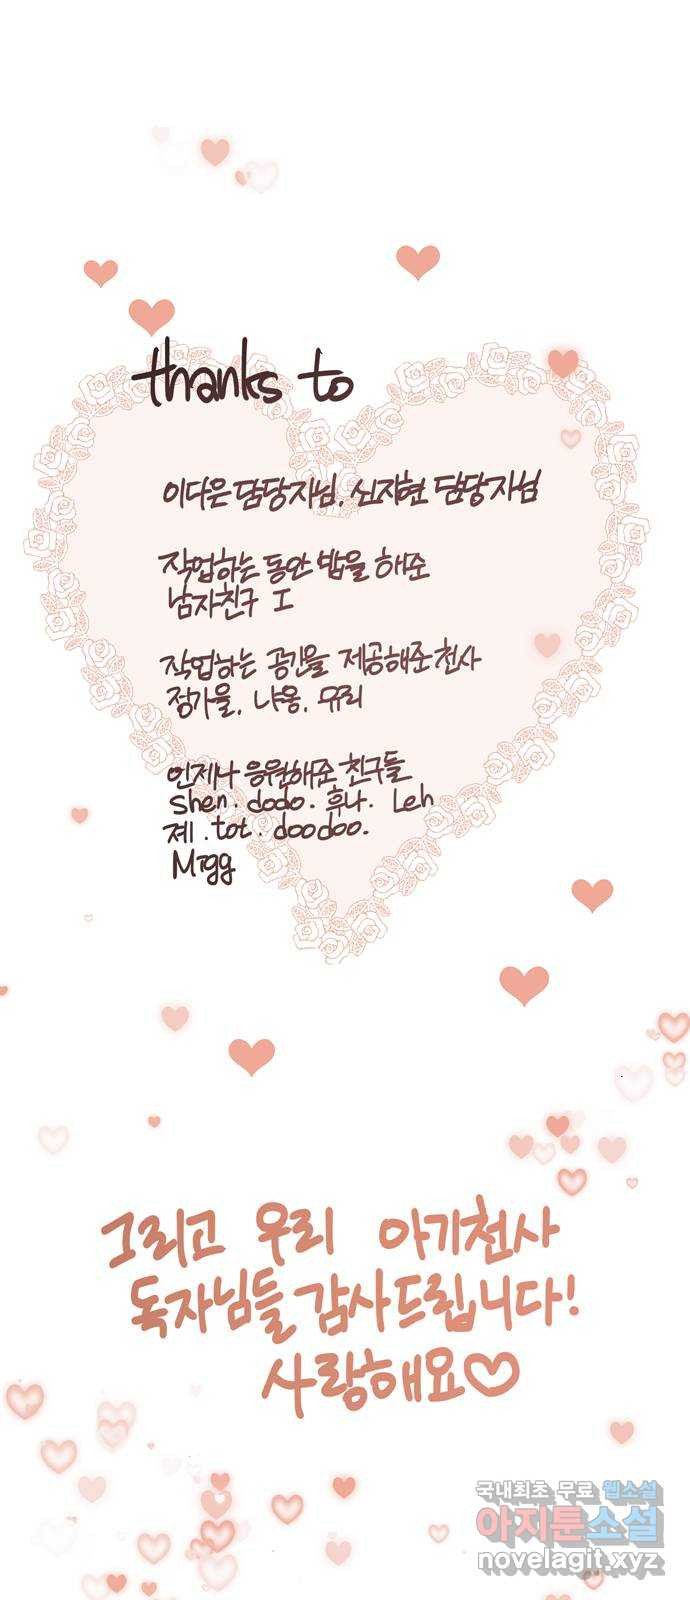 thanks to
이다은 담당자님, 신지현 담당자님
작업하는 동안 밥을 해준
남자친구 I
작업하는 공간을 제공해준 천사
정가을, 냐옹, 유리
언제나 응원해준 친구들
shen · dodo · 후나 · Leh
졔 · tot · doodoo.
Migg
그리고 우리 아기천사
독자님들 감사드립니다!
사랑해요♡
국내최초 무료 웹소설
아지툰소설
novelagit.xyz